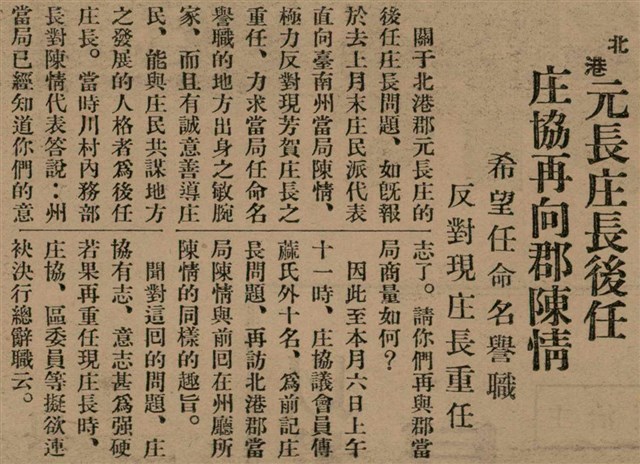 北港
元長庄長後任
庄協再向郡陳情
希望任命名譽職
反對現庄長重任
關于北港郡元長庄的
後任庄長問題、如旣報
於去上月末庄民派代表
直向臺南州當局陳情、
極力反對現芳賀庄長之
重任、力求當局任命名
譽職的地方出身之敏腕
家、而且有誠意善導庄
民、能與庄民共謀地方
之發展的人格者爲後任
庄長。當時川村內務部
長對陳情代表答說：州
當局已經知道你們的意
志了。請你們再與郡當
局商量如何？
因此至本月六日上午
十一時、庄協議會員傳
蔴氏外十名、爲前記庄
長問題、再訪北港郡當
局陳情與前回在州廳所
陳情的同樣的趣旨。
聞對這回的問題、庄
協有志、意志甚爲强硬
若果再重任現庄長時、
庄協、區委員等擬欲連
袂決行總辭職云。